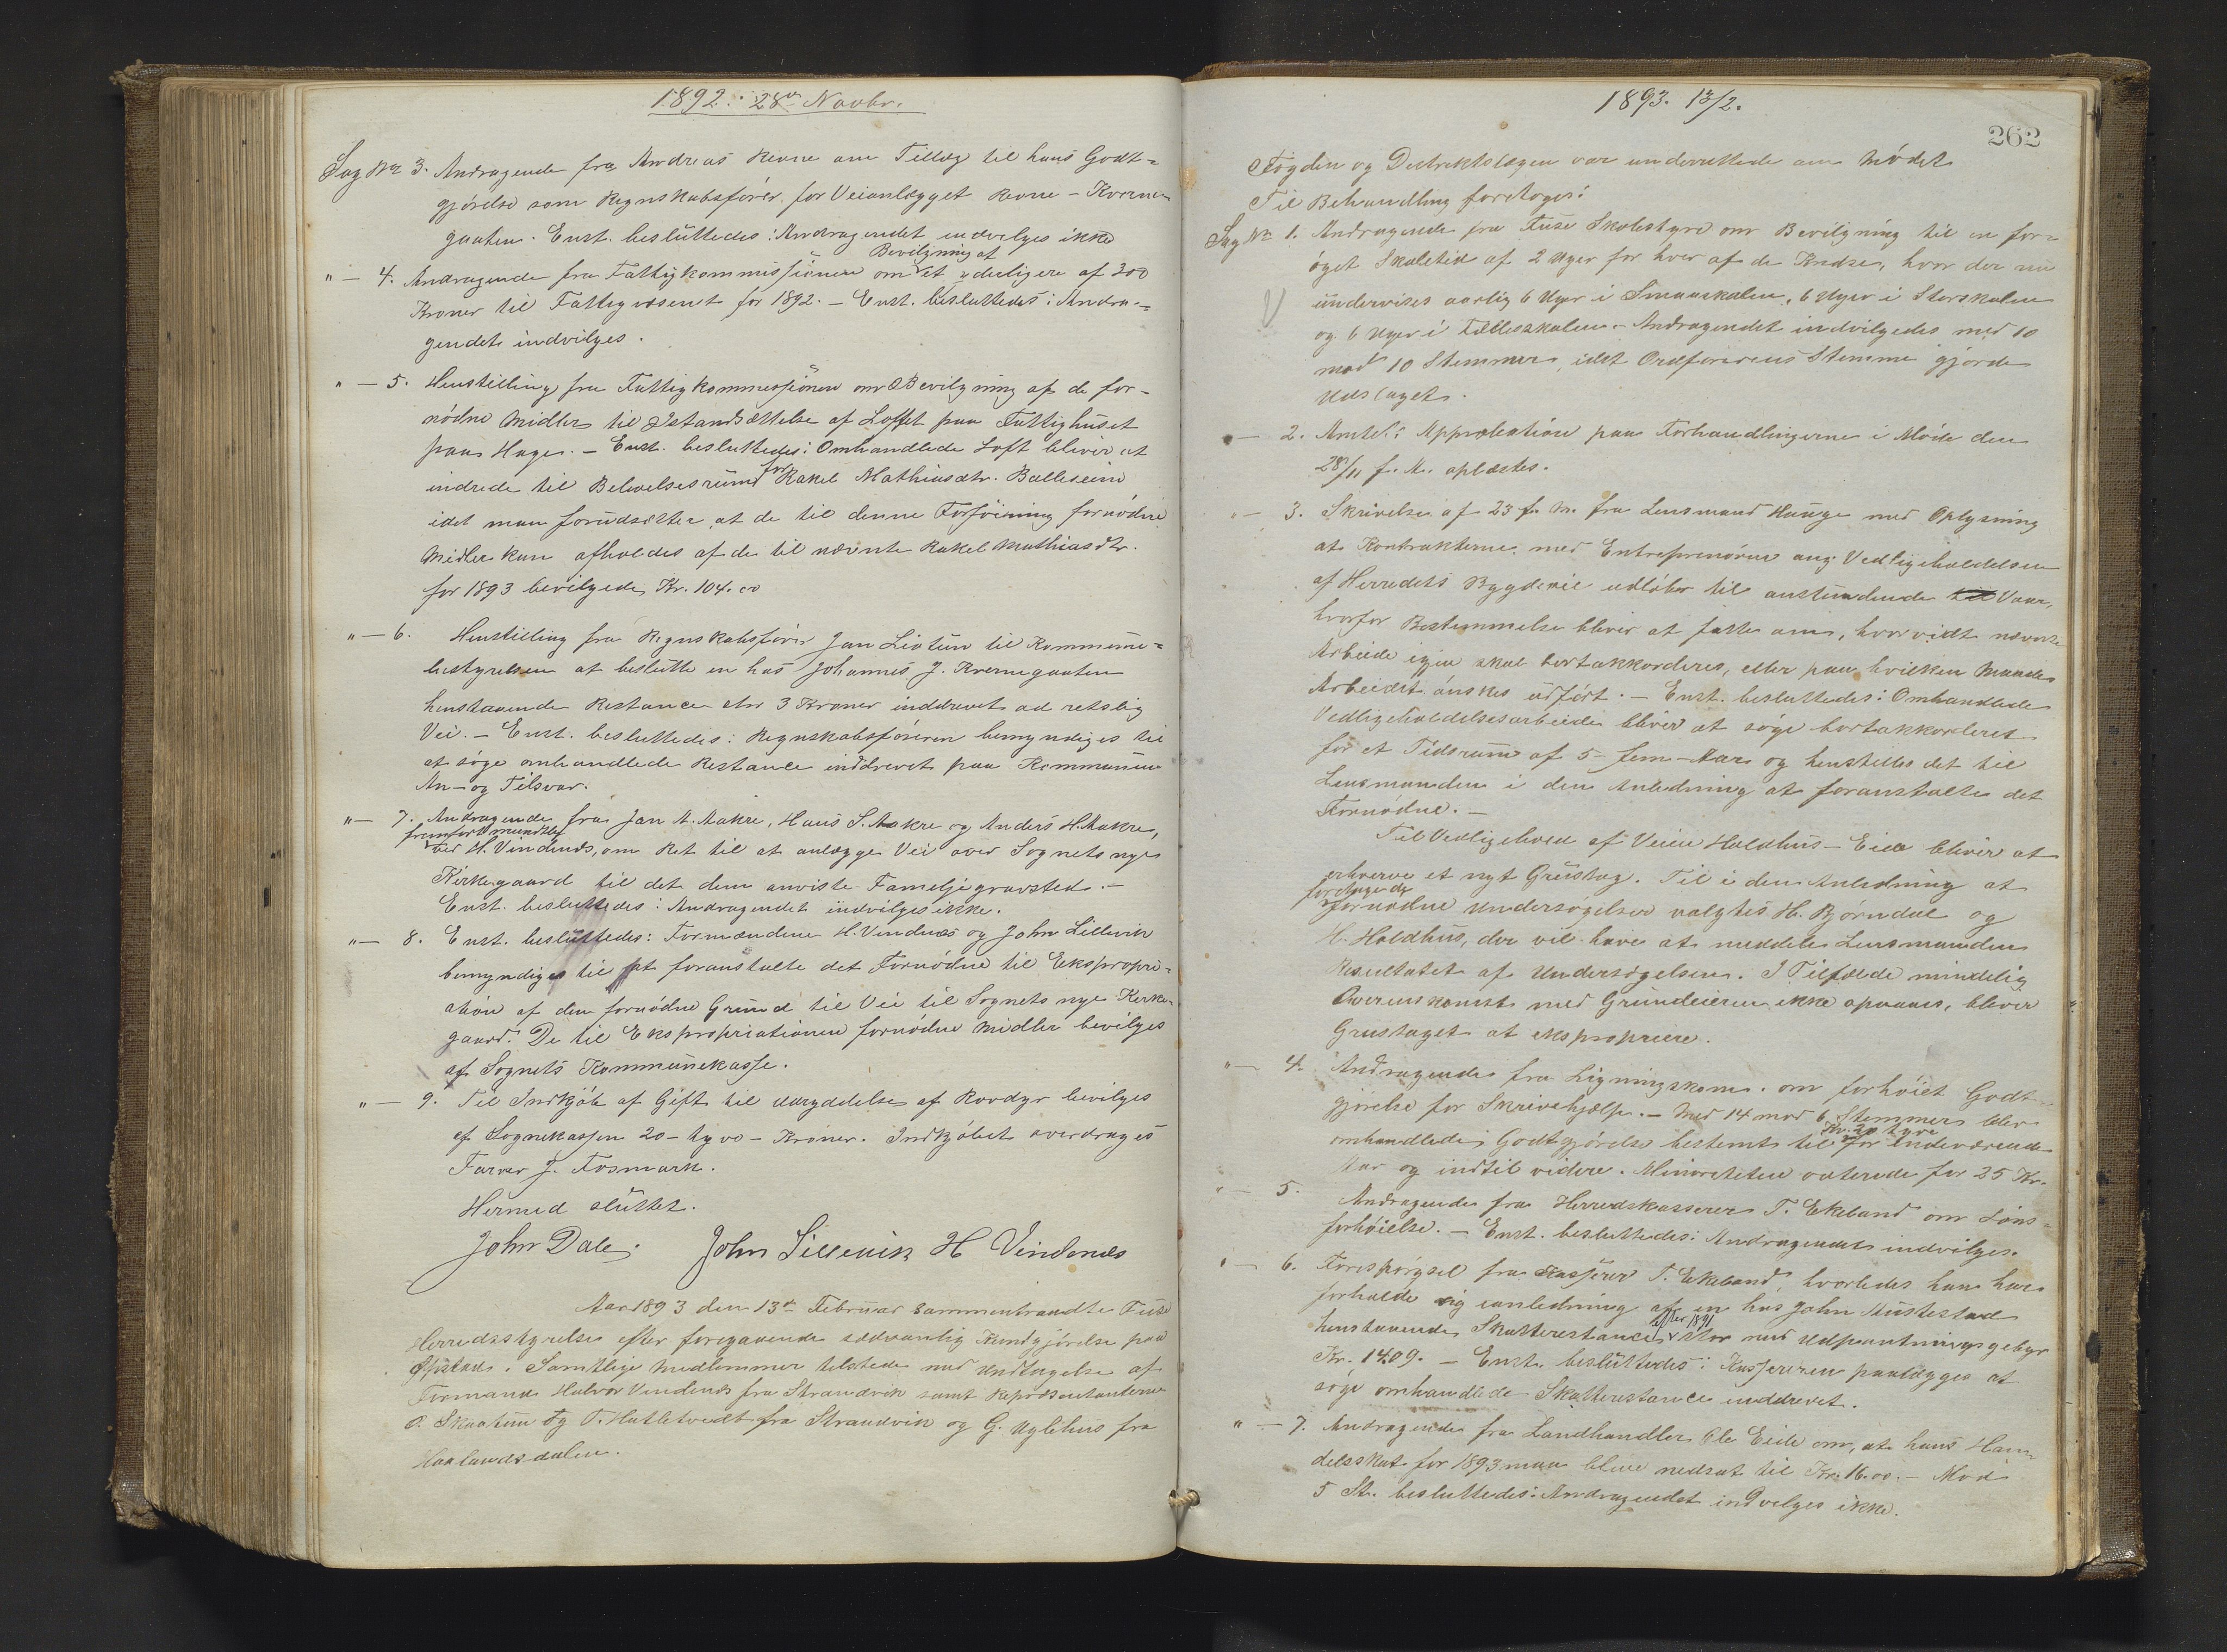 1892. 28de Novbr.
Sag No 3. Andragende fra Andreas Revne om Tillæg til hans Godt-
gjörelse som Regnskabsförer for Veianlægget Revne - Kverne-
gaaten. Enst. besluttedes: Andragendet indvilges ikke
Bevilgning af
" — 4. Andragende fra Fattigkommissionen om et yderligere af 300
Kroner til Fattigvæsenet for 1892. — Enst. besluttedes: Andra-
gendet indvilges.
" — 5. Henstilling fra Fattigkommissionen om Bevilgning af de for-
nödne Midler til Istandsættelse af Loftet paa Fattighuset
paa Hage. — Enst. besluttedes: Omhandlede Loft bliver at
indrede til Beboelsesrum for Rakel Mathiasdtr. Balleseim
idet man forudsætter at de til denne Forföining fornödne
Midler kan afholdes af de til nævnte Rakel Mathiasdtr.
for 1893 bevilgede Kr. 104.00
" — 6. Henstilling fra Regnskabsförer Jan Liotun til Kommune-
bestyrelsen at beslutte en hos Johannes J. Kvernegaaten
henstaaende Restance stor 3 Kroner inddrevet ad retslig
Vei. — Enst. besluttedes: Regnskabsföreren bemyndiges til
at söge omhandlede Restance inddrevet paa Kommunens
An- og Tilsvar.
" — 7. Andragende fra Jan A. Aakre, Hans S. Aakre og Anders H. Aakre,
fremfort mundtlig
ved H. Vindenes, om Ret til at anlægge Vei over Sognets nye
Kirkegaard til det dem anviste Familjegravsted. —
Enst. besluttedes: Andragendet indvilges ikke.
" — 8. Enst. besluttedes: Formændene H. Vindnæs og John Lillevik
bemyndiges til at foranstalte det Fornödne til Ekspropri-
ation af den fornödne Grund til Vei til Sognets nye Kirke-
gaard. De til Ekspropriationen fornödne Midler bevilges
af Sognets Kommunekasse.
" — 9. Til Indkjöb af Gift til Udryddelse af Rovdyr bevilges
af Sognekassen 20 - tyve - Kroner. Indkjöbet overdrages
Farver J. Fosmark.
Hermed sluttet.
John Dale. John Lillevik H Vindenes
Aar 1893 den 13de Februar sammentraadte Fuse
Herredsstyrelse efter foregaaende sædvanlig Kundgjörelse paa
. Samtlige Medlemmer tilstede med Undtagelse af
Formand Halvor Vindenes fra Strandvik samt Repræsentanterne
O. Skaatun og T. Hatletvedt fra Strandvik og G. Uglehus fra
Haalandsdalen.
1893. 13/2.
262
Fogden og Distriktslægen var underrettede om Mödet
Til Behandling foretoges:
Sag No 1. Andragende fra Fuse Skolestyre om Bevilgning til en for-
öget Skoletid af 2 Uger for hver af de Kredse, hvor der nu
undervises aarlig 6 Uger i Smaaskolen, 6 Uger i Storskolen
og 6 Uger i Fællesskolen. — Andragendet indvilgedes med 10
mod 10 Stemmer, idet Ordförerens Stemme gjorde
Udslaget.
" — 2. Amtets Approbation paa Forhandlingerne i Möde den
28/11 f. A. oplæstes.
" — 3. Skrivelse af 23 f. M. fra Lensmand Hauge med Oplysning
at Kontrakterne med Entreprenörene ang Vedligeholdelsen
af Herredets Bygdeveie udlöber til anstundende til Vaar,
hvorfor Bestemmelse bliver at fatte om, hvorvidt nævnte
Arbeide igjen skal bortakkorderes, eller paa hvilken Maade
Arbeidet önskes udfört. — Enst. besluttedes: Omhandlede
Vedligeholdelsesarbeide bliver at söge bortakkorderet
for et Tidsrum af 5 - fem - Aar og henstilles det til
Lensmanden i den Anledning at foranstalte det
Fornödne. —
Til Vedligehold af Veien Holdhus - Eide bliver at
erhverve et nyt Grustag. Til i den Anledning at
foretage de
fornödne Undersögelser valgtes H. Björndal og
H. Holdhus, der vil have at meddele Lensmanden
Resultatet af Undersögelsen. I Tilfælde mindelig
Overenskomst med Grundeieren ikke opnaaes, bliver
Grustaget at ekspropriere.
" — 4. Andragende fra Ligningskom. om forhöiet Godt-
gjörelse for Skrivehjælp. — Med 14 mod 6 Stemmer blev
Kr. 20 tyve
omhandlede Godtgjörelse bestemt til for Indeværende
Aar og indtil videre. Minoriteten voterede for 25 Kr.
" — 5. Andragende fra Herredskasserer T. Ekeland om Löns-
forhöielse. — Enst. besluttedes: Andragendet indvilges.
" — 6. Forespörgsel fra Kasserer T. Ekeland, hvorledes han har
forholde sig ianledning af en hos John Mustestad
efter 1891
henstaaende Skatterestance stor med Udpantningsgebyr
Kr. 14.09. — Enst. besluttedes: Kassereren paalægges at
söge omhandlede Skatterestance inddrevet.
" — 7. Andragende fra Landhandler Ole Eide om, at hans Han-
delsskat for 1893 maa blive nedsat til Kr. 16.00. — Mod
5 St. besluttedes: Andragendet indvilges ikke.